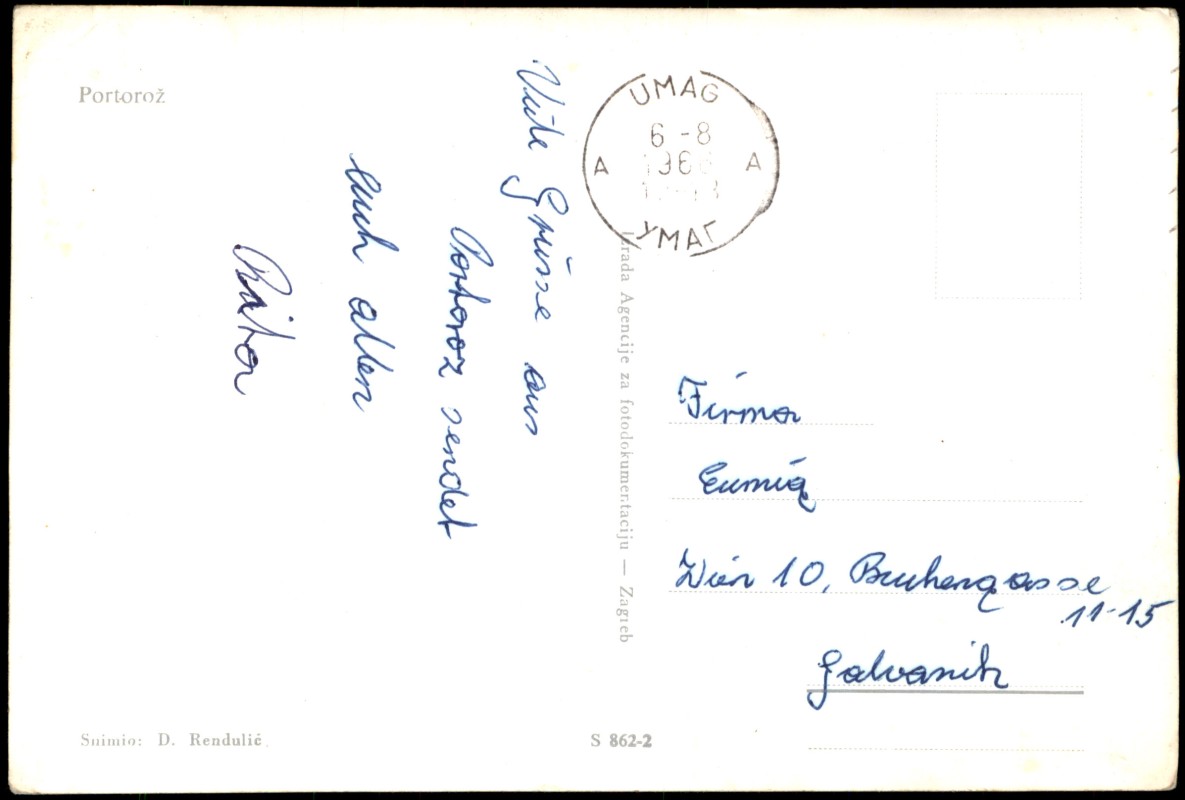 Portorož
Viele Grüsse aus
Portoroz sendet
Euch allen
Rita
UMAG
6 -8
A
A
УМАГ
Izrada Agencije za fotodokumentaciju — Zagreb
Firma
Eumig
Wien 10, Buchengasse
11-15
Galvanik
Snimio: D. Rendulić
S 862-2